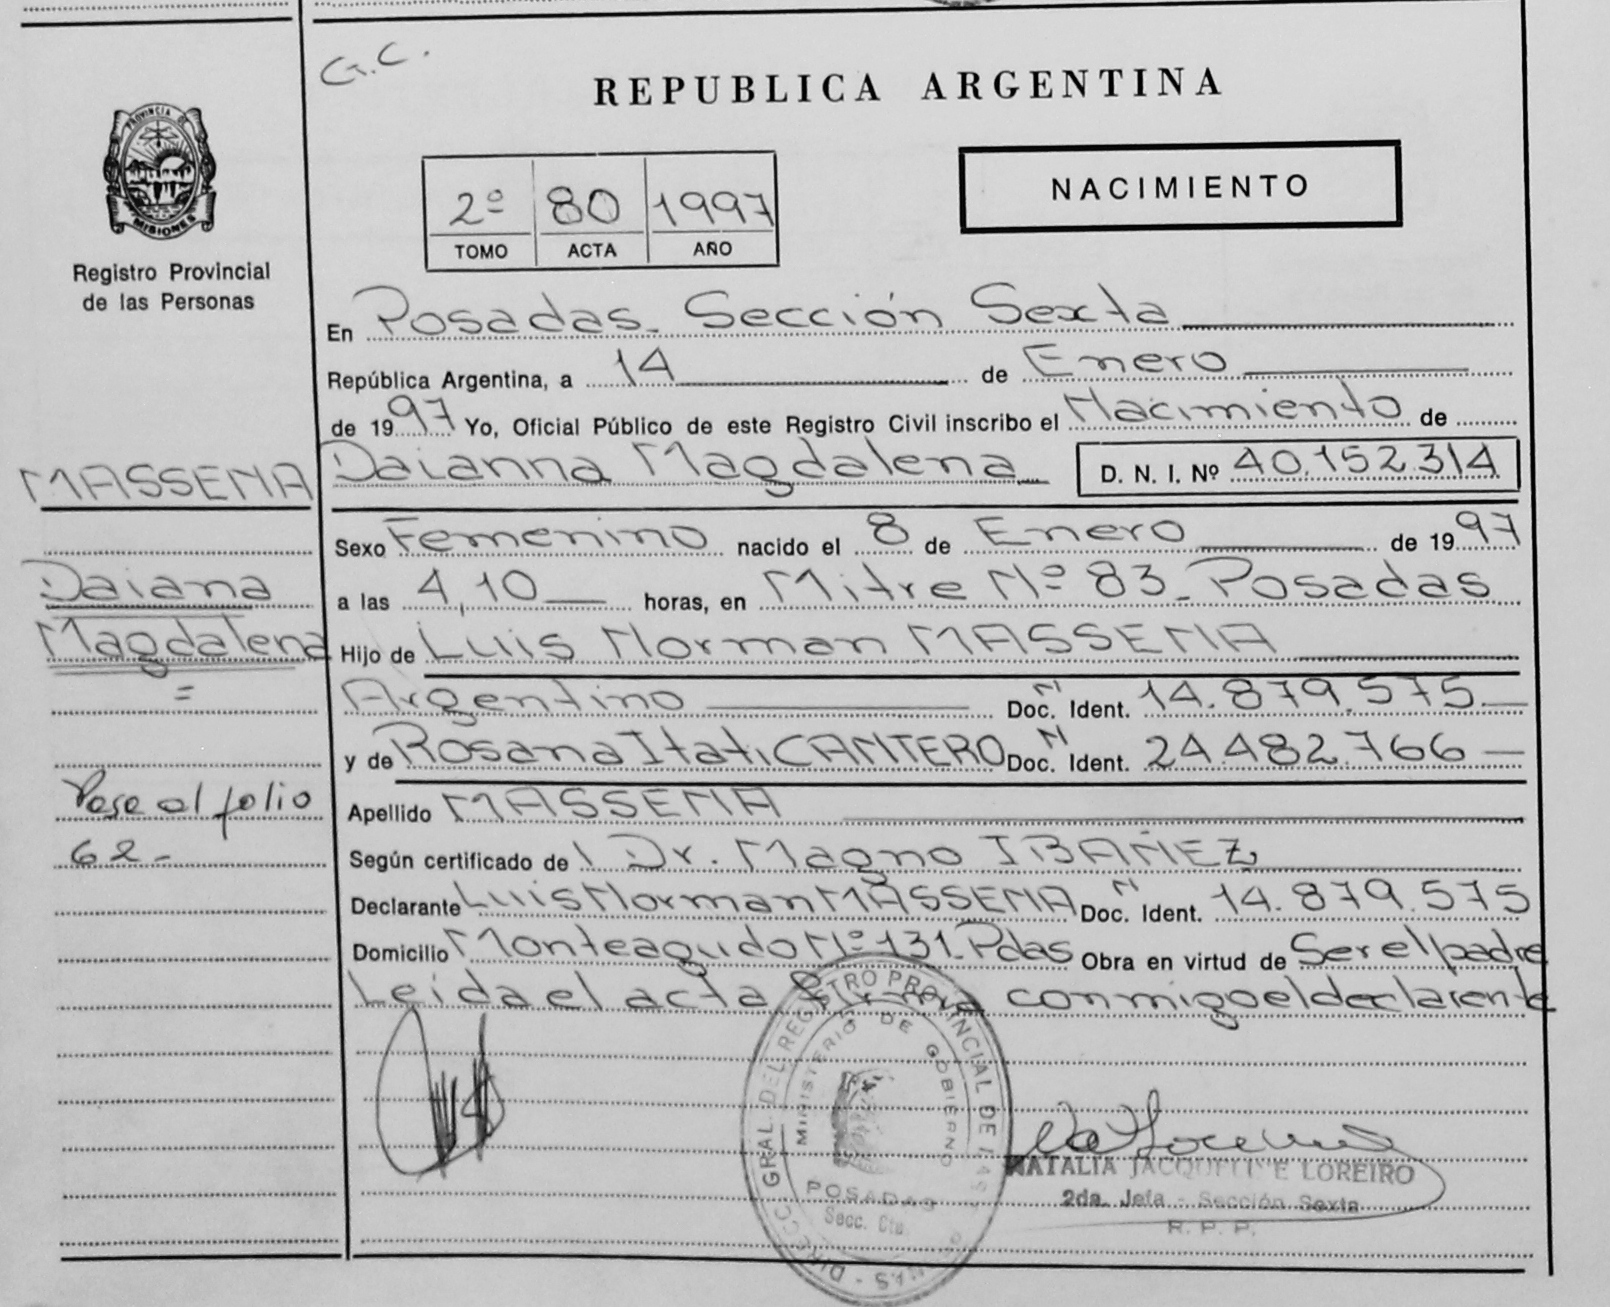 G.C.
REPUBLICA ARGENTINA
PROVINCIA DE
MISIONES
Registro Provincial
de las Personas
2º 80 1997
TOMO ACTA AÑO
NACIMIENTO
En Posadas. Sección Sexta
República Argentina, a 14 de Enero
de 1997 Yo, Oficial Público de este Registro Civil inscribo el Nacimiento de
MASSENA
Daianna Magdalena D. N. I. Nº 40.152.314
Sexo Femenino nacido el 8 de Enero de 1997
Daiana
Magdalena
=
a las 4,10 horas, en Mitre Nº 83_ Posadas
Hijo de Luis Norman MASSENA
Argentino Doc. NI Ident. 14.879.575
y de Rosana Itati CANTERO Doc. NI Ident. 24.482.766
Pase al folio
62-
Apellido MASSENA
Según certificado de Dr. Magno IBAÑEZ
Declarante Luis Norman MASSENA Doc. NI Ident. 14.879.575
Domicilio Monteagudo Nº 131_ Pdas Obra en virtud de Ser el padre
Leida el acta firma conmigo el declarente
DIRECC GRAL DEL REGISTRO PROVINCIAL DE LAS
MINISTERIO DE GOBIERNO
POSADAS
Secc. Cta.
NATALIA JACQUELINE LOREIRO
2da. Jefa - Sección Sexta
R. P. P.